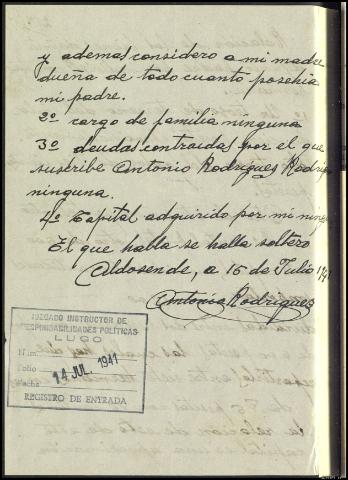 y ademas considero a mi madre
dueña de todo cuanto posehia
mi padre.
2º cargo de familia ninguna
3º deudas contraidas por el que
suscribe Antonio Rodrigues Rodrig
ninguna.
4º Capital adquirido por mi ning
El que habla se halla soltero
Aldosende, a 16 de Julio
Antonio Rodrigues
JUZGADO INSTRUCTOR DE
RESPONSABILIDADES POLÍTICAS
LUGO
Núm.
Folio
Fecha
14 JUL. 1941
REGISTRO DE ENTRADA